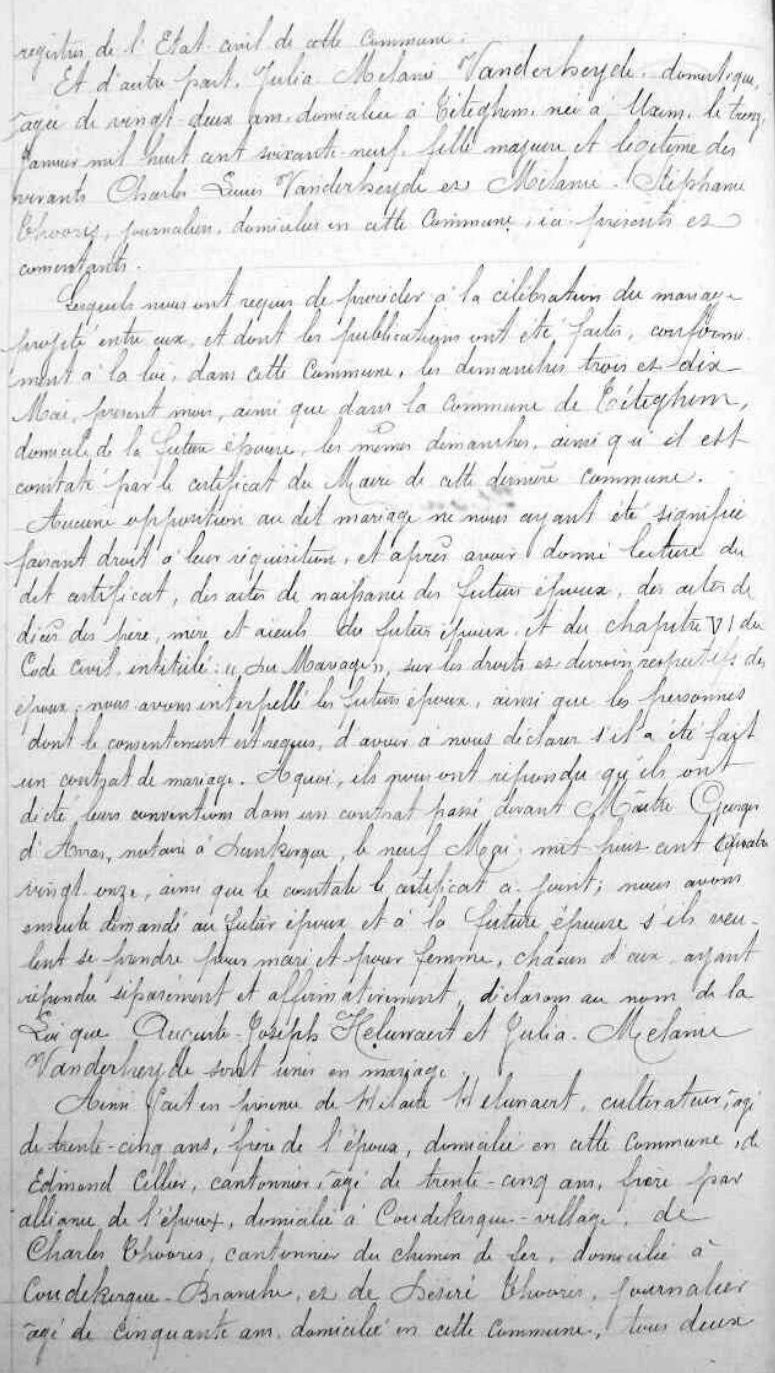 registres de l'Etat civil de cette Commune.
Et d'autre part, Julia Mélanie Vanderheyde, domestique,
âgée de vingt-deux ans, domiciliée à Téteghem, née à Uxem, le treize
Janvier mil huit cent soixante-neuf, fille majeure et légitime des
vivants Charles Louis Vanderheyde et Mélanie-Stéphanie
Thooris, journaliers, domiciliés en cette Commune, ici présents et
consentants.
Lesquels nous ont requis de procéder à la célébration du mariage
projeté entre eux, et dont les publications ont été faites, conformé-
ment à la loi, dans cette Commune, les dimanches trois et dix
Mai, présent mois, ainsi que dans la commune de Téteghem,
domicile de la future épouse, les mêmes dimanches, ainsi qu'il est
constaté par le certificat du Maire de cette dernière commune.
Aucune opposition au dit mariage ne nous ayant été signifiée
faisant droit à leur réquisition, et après avoir donné lecture du
dit certificat, des actes de naissance des futurs époux, des actes de
décès des père, mère et aïeuls du futur époux, et du chapitre VI du
Code civil, intitulé: "du Mariage", sur les droits et devoirs respectifs des
époux; nous avons interpellé les futurs époux, ainsi que les personnes
dont le consentement est requis, d'avoir à nous déclarer s'il a été fait
un contrat de mariage. A quoi, ils nous ont répondu qu'ils ont
dicté leurs conventions dans un contrat passé devant Maître Georges
d'Arras, notaire à Dunkerque, le neuf Mai mil huit cent quatre
vingt-onze, ainsi que le constate le certificat ci-joint; nous avons
ensuite demandé au futur époux et à la future épouse s'ils veu-
lent se prendre pour mari et pour femme, chacun d'eux ayant
répondu séparément et affirmativement, déclarons au nom de la
Loi que Auguste-Joseph Helunaert et Julia-Mélanie
Vanderheyde sont unis en mariage.
Ainsi fait en présence de Helunaert, cultivateur, âgé
de trente-cinq ans, frère de l'époux, domicilié en cette commune, de
Edmond Cellier, cantonnier, âgé de trente-cinq ans, frère par
alliance de l'époux, domicilié à Coudekerque-village, de
Charles Thooris, cantonnier du chemin de fer, domicilié à
Coudekerque-Branche, et de Désiré Thooris, journalier
âgé de cinquante ans, domicilié en cette commune, tous deux